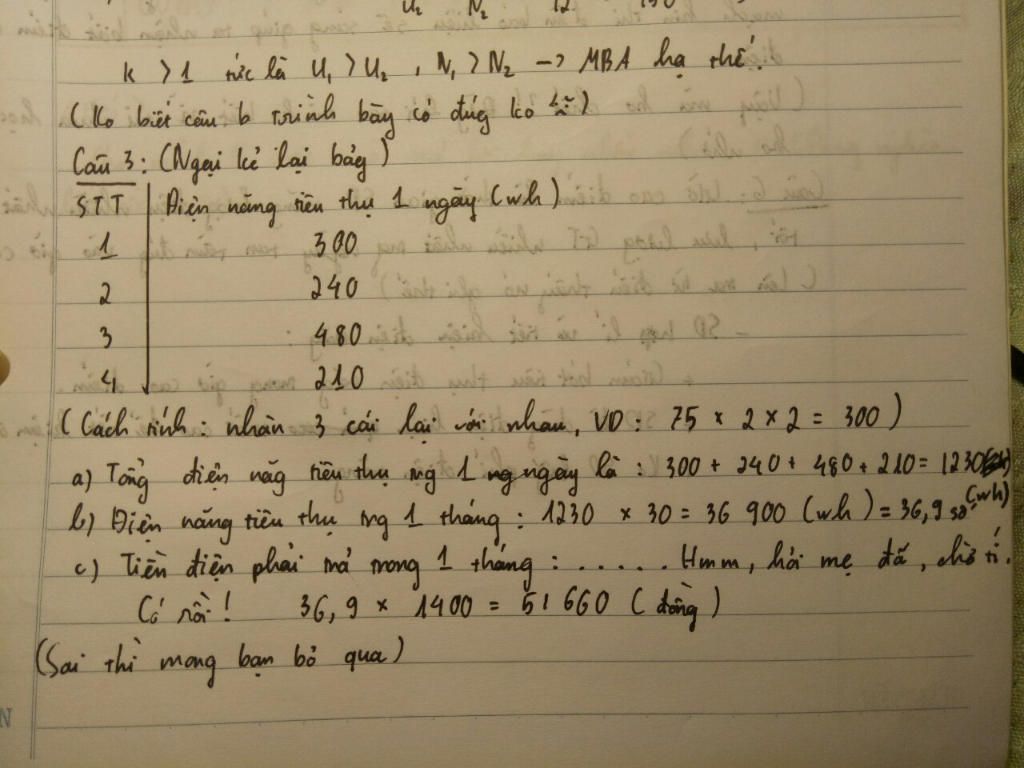 U₂ N₂ 12
k > 1 tức là U₁ > U₂ , N₁ > N₂ -> MBA hạ thế.
(Ko biết câu b trình bày có đúng ko)
Câu 3: (Ngại kẻ lại bảg)
STT Điện năng tiêu thụ 1 ngày (wh)
1 300
2 240
3 480
4 210
(Cách tính: nhân 3 cái lại với nhau, VD: 75 × 2 × 2 = 300)
a) Tổng điện năg tiêu thụ trg 1 ngày là : 300 + 240 + 480 + 210 = 1230 (wh)
b) Điện năng tiêu thụ trg 1 tháng : 1230 × 30 = 36 900 (wh) = 36,9 số
c) Tiền điện phải trả trong 1 tháng : ...... Hmm, hỏi mẹ đã, chờ tí.
Có rồi! 36,9 × 1400 = 51 660 (đồng)
(Sai thì mong bạn bỏ qua)
N